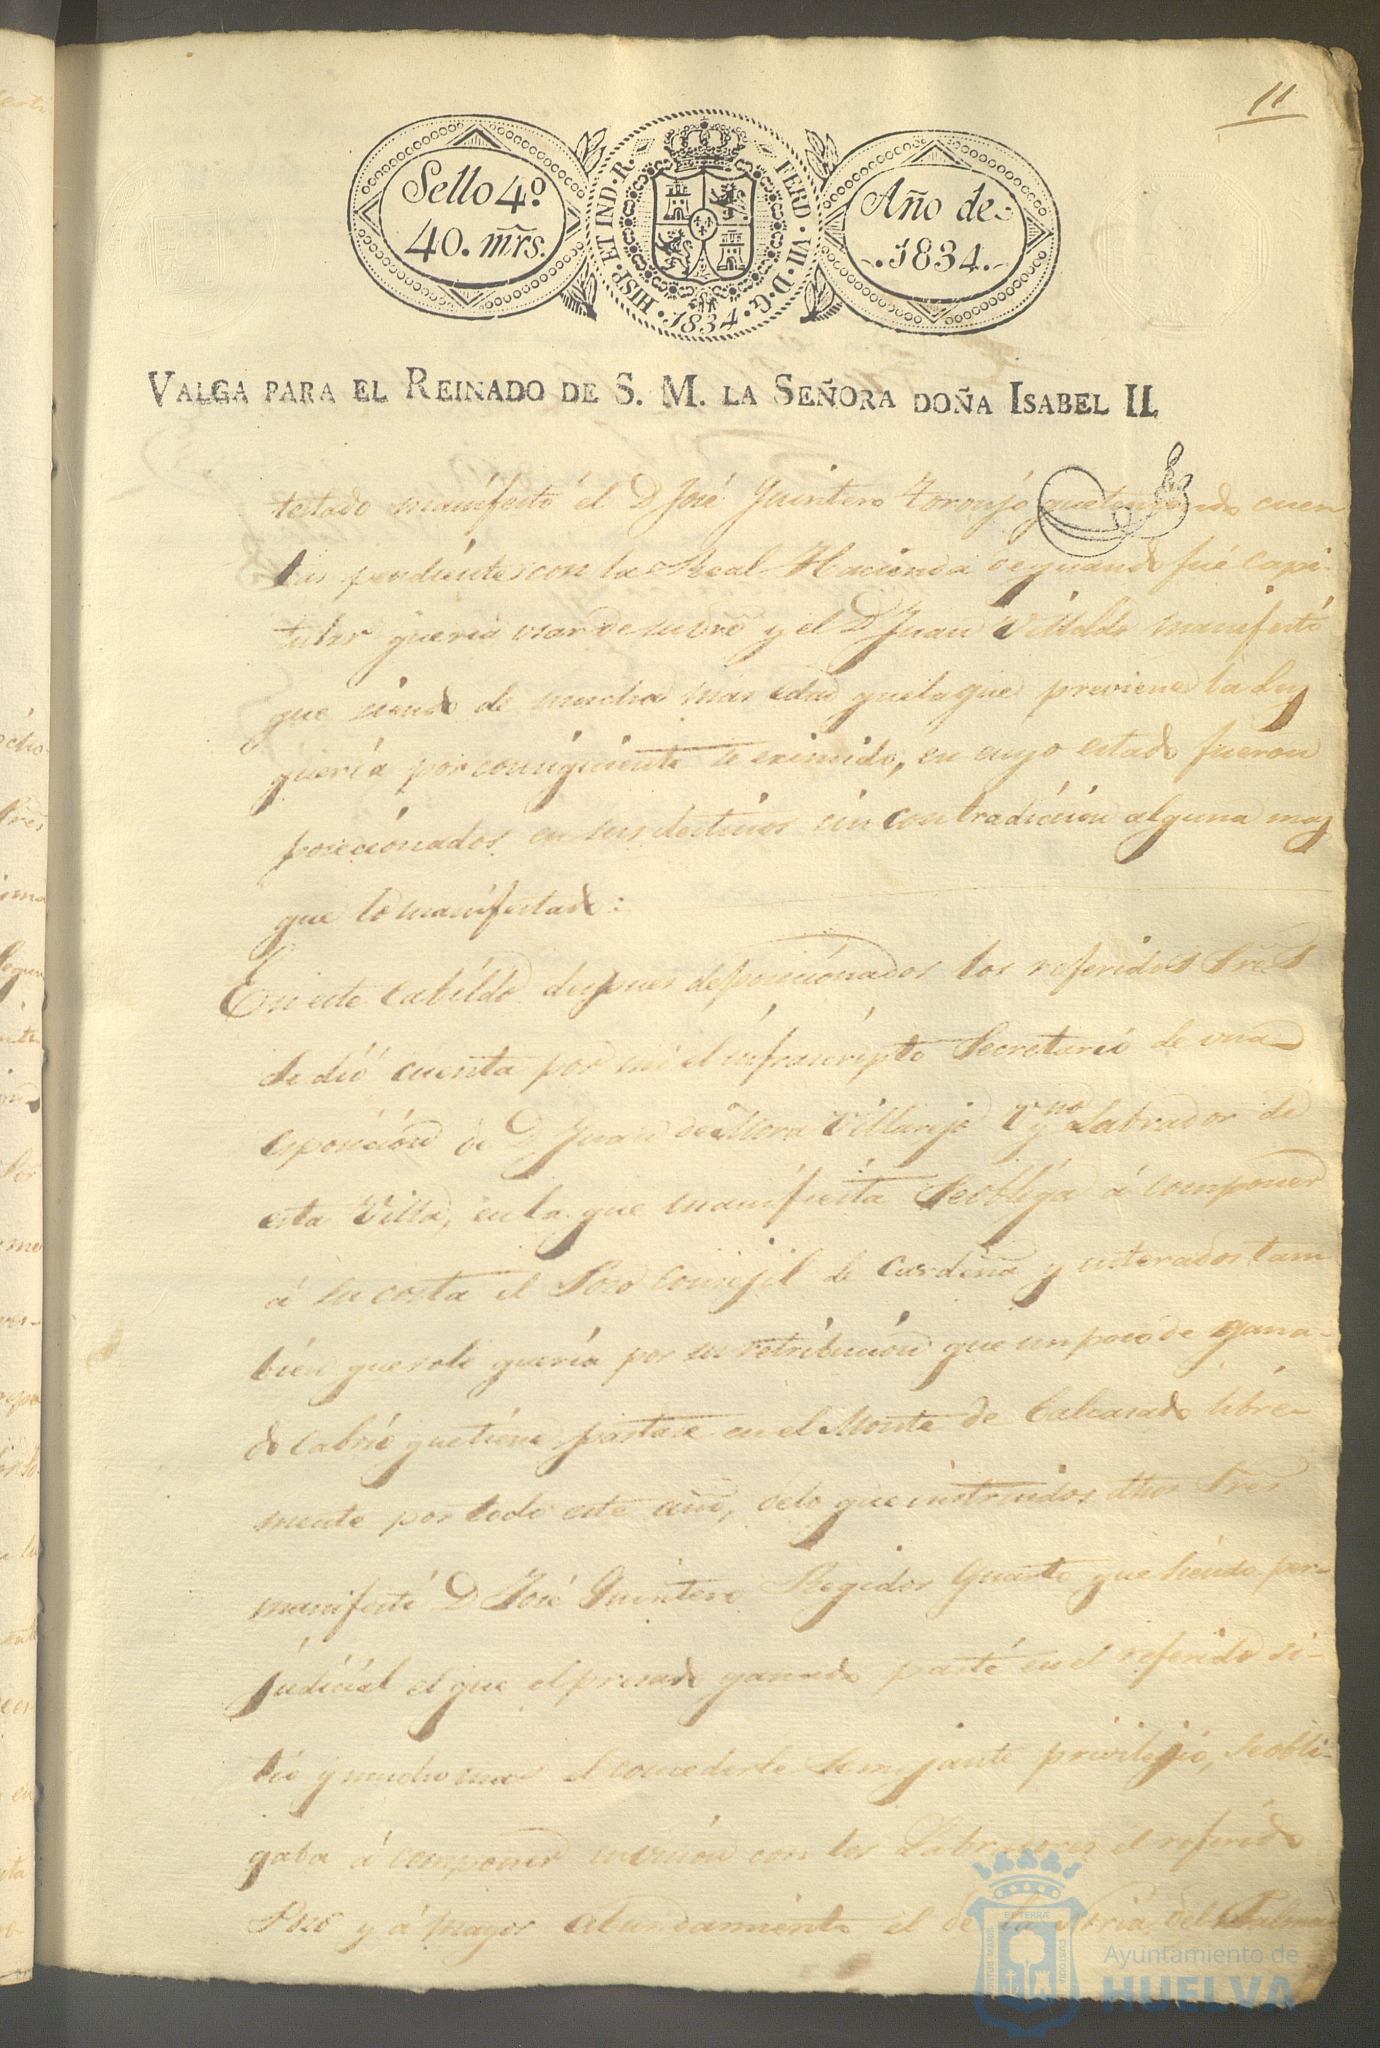 11
Sello 4º
40. mrs.
HISP. ET IND. R.
FERD. VII. D. G.
1834
Año de
1834.
VALGA PARA EL REINADO DE S. M. LA SEÑORA DOÑA ISABEL II.
testado manifestó el D José Quintero Toronjo que teniendo cuen
tas pendientes con la Real Hacienda de quando fué Capi-
tular queria usar de su dro y el D Juan Villalde manifestó
que siendo de mucha mas edad que la que previene la Ley
queria por consiguiente se eximido, en cuyo estado fueron
posecionados en sus destinos sin contradición alguna mas
que lo manifestado:
En este Cabildo despues de posecionados los referidos Sres
se dió cuenta por mi el infrascripto Secretario de una
esposición de D Juan de Mora Villarejo Vno y Labrador de
esta Villa, en la que manifiesta se obliga á componer
á su costa el Poso Consejil de Cardeña y enterados tam
bien que solo queria por su retribución que un poco de gana-
do Cabrio que tiene pastase en el Monte de Calcasado libre-
mente por todo este año, de lo que instruidos dhos Sres
manifestó D José Quintero Regidor Quarto que siendo per-
judicial el que el presado ganado paste en el referido si-
tio y mucho mas el concederle semejante privilegio, se obli-
gaba á componer en union con los Labradores el referido
Poso y á mayor abundamiento el de la
Ayuntamiento de
HUELVA